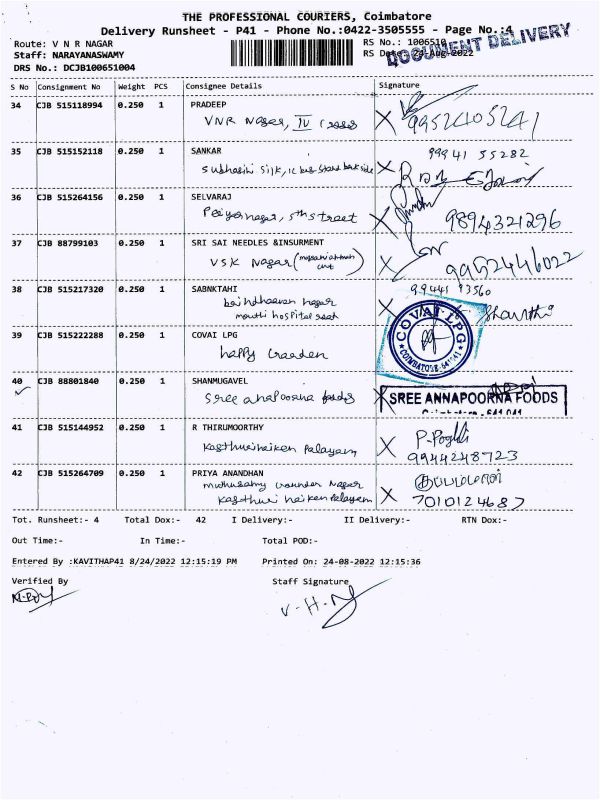 THE PROFESSIONAL COURIERS, Coimbatore
Delivery Runsheet - P41 - Phone No.:0422-3505555 - Page No.:4
DOCUMENT DELIVERY
Route: V N R NAGAR
RS No.: 1006510
Staff: NARAYANASWAMY
RS Date: 24-Aug-2022
DRS No.: DCJB100651004
S No Consignment No Weight PCS Consignee Details Signature
34 CJB 515118994 0.250 1 PRADEEP
VNR Nagar, IV Cross 9952405241
35 CJB 515152118 0.250 1 SANKAR 99941 55282
Subhasini Silk, ic bus stand back side
36 CJB 515264156 0.250 1 SELVARAJ
Periyar nagar, 5th street 9894321296
37 CJB 88799103 0.250 1 SRI SAI NEEDLES &INSURMENT
VSK Nagar 9952446022
38 CJB 515217320 0.250 1 SABNKTAHI 99441 93560
nagar
hospital
39 CJB 515222288 0.250 1 COVAI LPG COVAI LPG
happy Garden COIMBATORE-641041
40 CJB 88801840 0.250 1 SHANMUGAVEL
Sree anapoorna foods SREE ANNAPOORNA FOODS
Coimbatore - 641 041
41 CJB 515144952 0.250 1 R THIRUMOORTHY
Kasthurinaiken Palayam 9944248723
42 CJB 515264709 0.250 1 PRIYA ANANDHAN
Muthusamy Gounder Nagar
Kasthuri naiken Palayam 7010124687
Tot. Runsheet:- 4 Total Dox:- 42 I Delivery:- II Delivery:- RTN Dox:-
Out Time:- In Time:- Total POD:-
Entered By :KAVITHAP41 8/24/2022 12:15:19 PM Printed On: 24-08-2022 12:15:36
Verified By Staff Signature